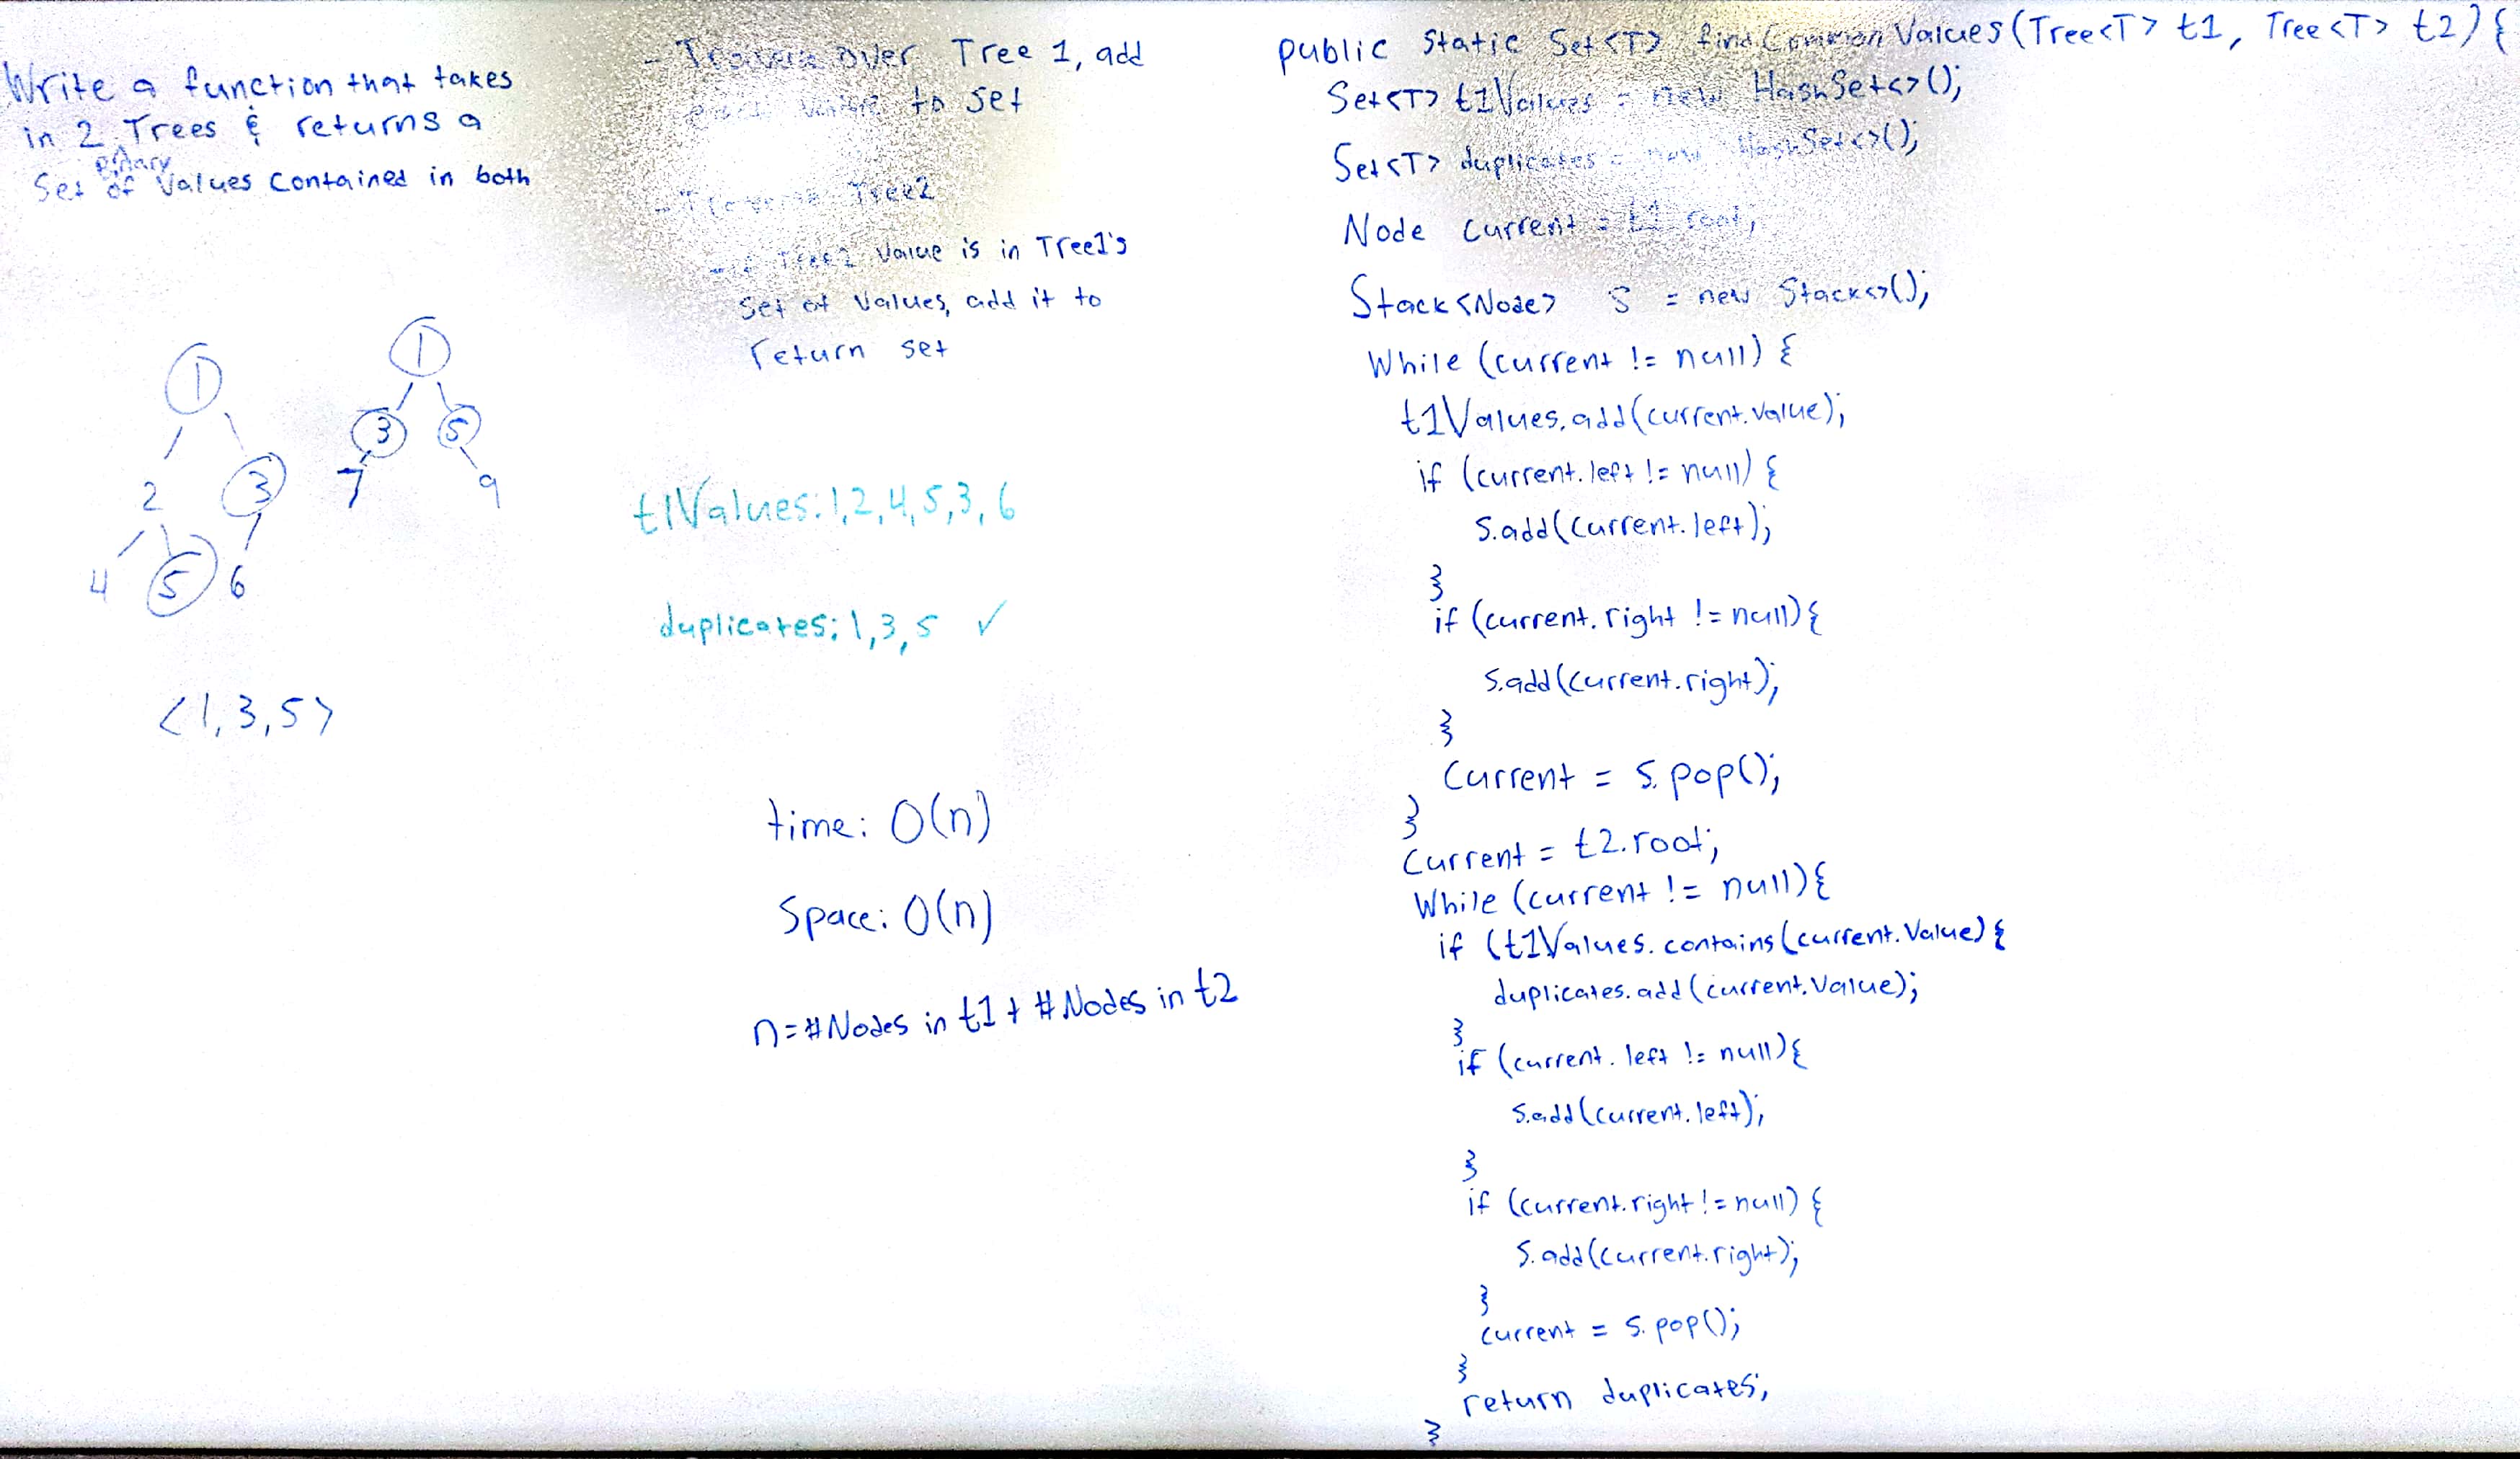 Write a function that takes
in 2 Trees & returns a
Binary
Set of Values Contained in both
1
2 3
4 5 6
1
3 5
7 9
<1,3,5>
- Traverse over Tree 1, add
each value to set
- Traverse Tree2
- if Tree2 Value is in Tree1's
Set of Values, add it to
return set
t1Values: 1,2,4,5,3,6
duplicates: 1,3,5 ✓
time: O(n)
Space: O(n)
n=#Nodes in t1 + #Nodes in t2
public Static Set<T> find Common Values(Tree<T> t1, Tree<T> t2){
Set<T> t1Values = new HashSet<>();
Set<T> duplicates = new HashSet<>();
Node current = t1.root;
Stack<Node> S = new Stack<>();
While (current != null) {
t1Values.add(current.value);
if (current.left != null) {
S.add(current.left);
}
if (current.right != null){
S.add(current.right);
}
Current = S.pop();
}
Current = t2.root;
While (current != null){
if (t1Values.contains(current.Value){
duplicates.add(current.Value);
}
if (current.left != null){
S.add(current.left);
}
if (current.right != null) {
S.add(current.right);
}
current = S.pop();
}
return duplicates;
}